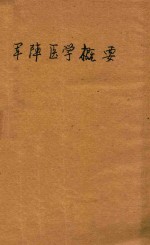 军陣医学概要